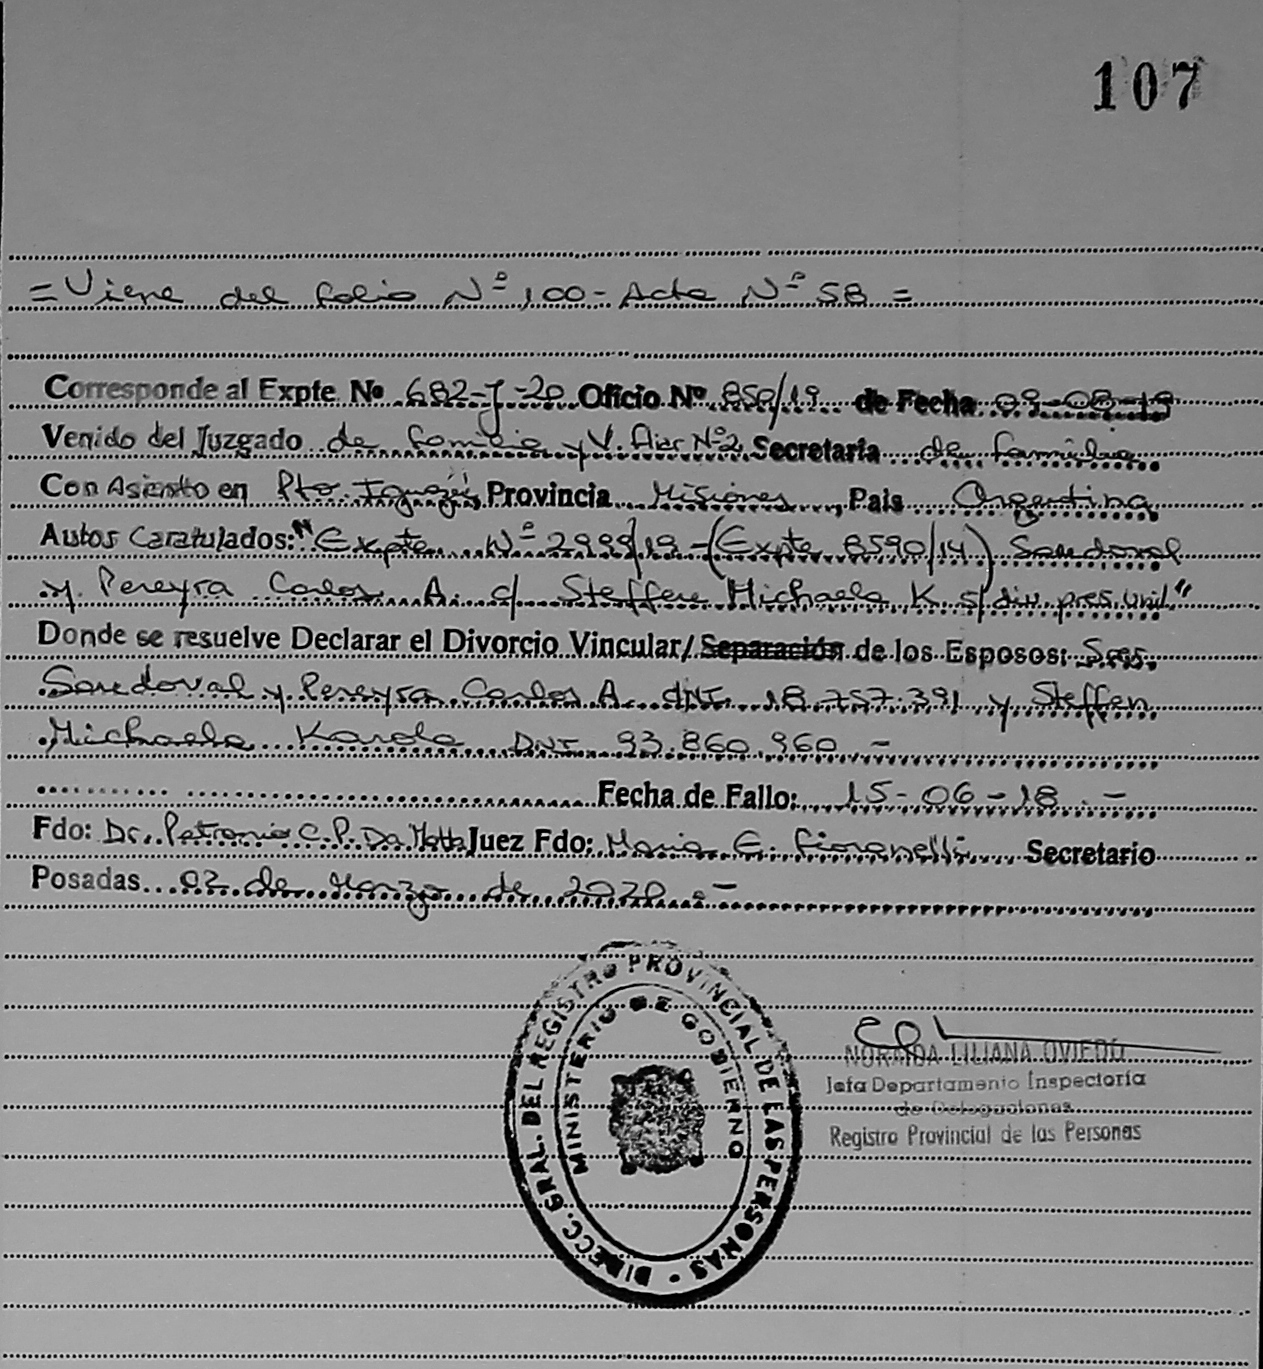 107
= Viene del folio Nº 100 - Acta Nº 58 =
Corresponde al Expte Nº 682-J-20 Oficio Nº 850/19 de Fecha 09-08-19
Venido del Juzgado de familia y V. fliar Nº2 Secretaria de familia
Con Asiento en Pto. Iguazú, Provincia Misiones, Pais Argentina
Autos Caratulados: "Expte Nº 2999/19 - (Expte 8590/14) Sandoval
y Pereyra Carlos A. c/ Steffen Michaela K. s/ div. pres. unil"
Donde se resuelve Declarar el Divorcio Vincular/ Separación de los Esposos: Sres.
Sandoval y Pereyra Carlos A. DNI. 18.757.391 y Steffen
Michaela Karola DNI. 93.860.960 -
Fecha de Fallo: 15-06-18. -
Fdo: Dr. Petronio C.P. Da Motta Juez Fdo: Maria G. Fioranelli Secretario
Posadas 02 de Marzo de 2020. -
DIRECC. GRAL. DEL REGISTRO PROVINCIAL DE LAS PERSONAS
MINISTERIO DE GOBIERNO
NORAIDA LILIANA OVIEDO
Jefa Departamento Inspectoría
de Delegaciones
Registro Provincial de las Personas